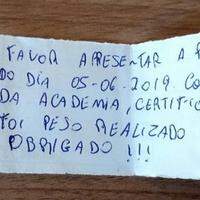 FAVOR APRESENTAR A
DO DIA 05-06.2019. CO
DA ACADEMIA, CERTIFIC
FOI PESO REALIZADO
OBRIGADO !!!